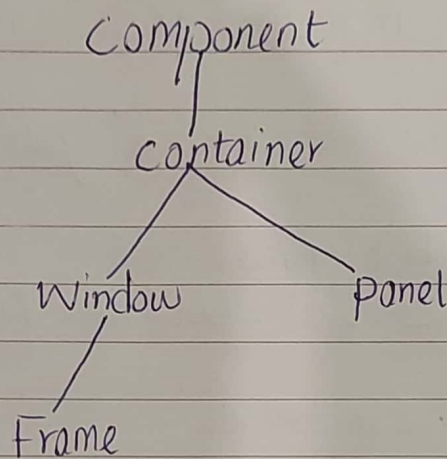 Component
Container
Window Panel
Frame